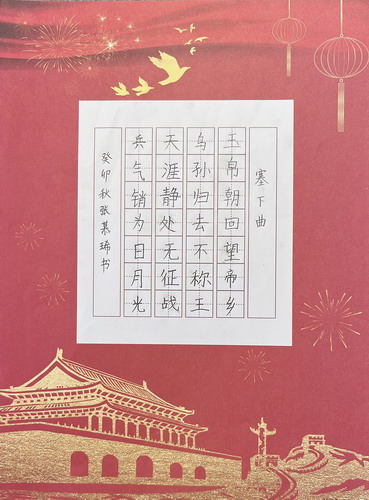 塞下曲
玉帛朝回望帝乡
乌孙归去不称王
天涯静处无征战
兵气销为日月光
癸卯秋张书